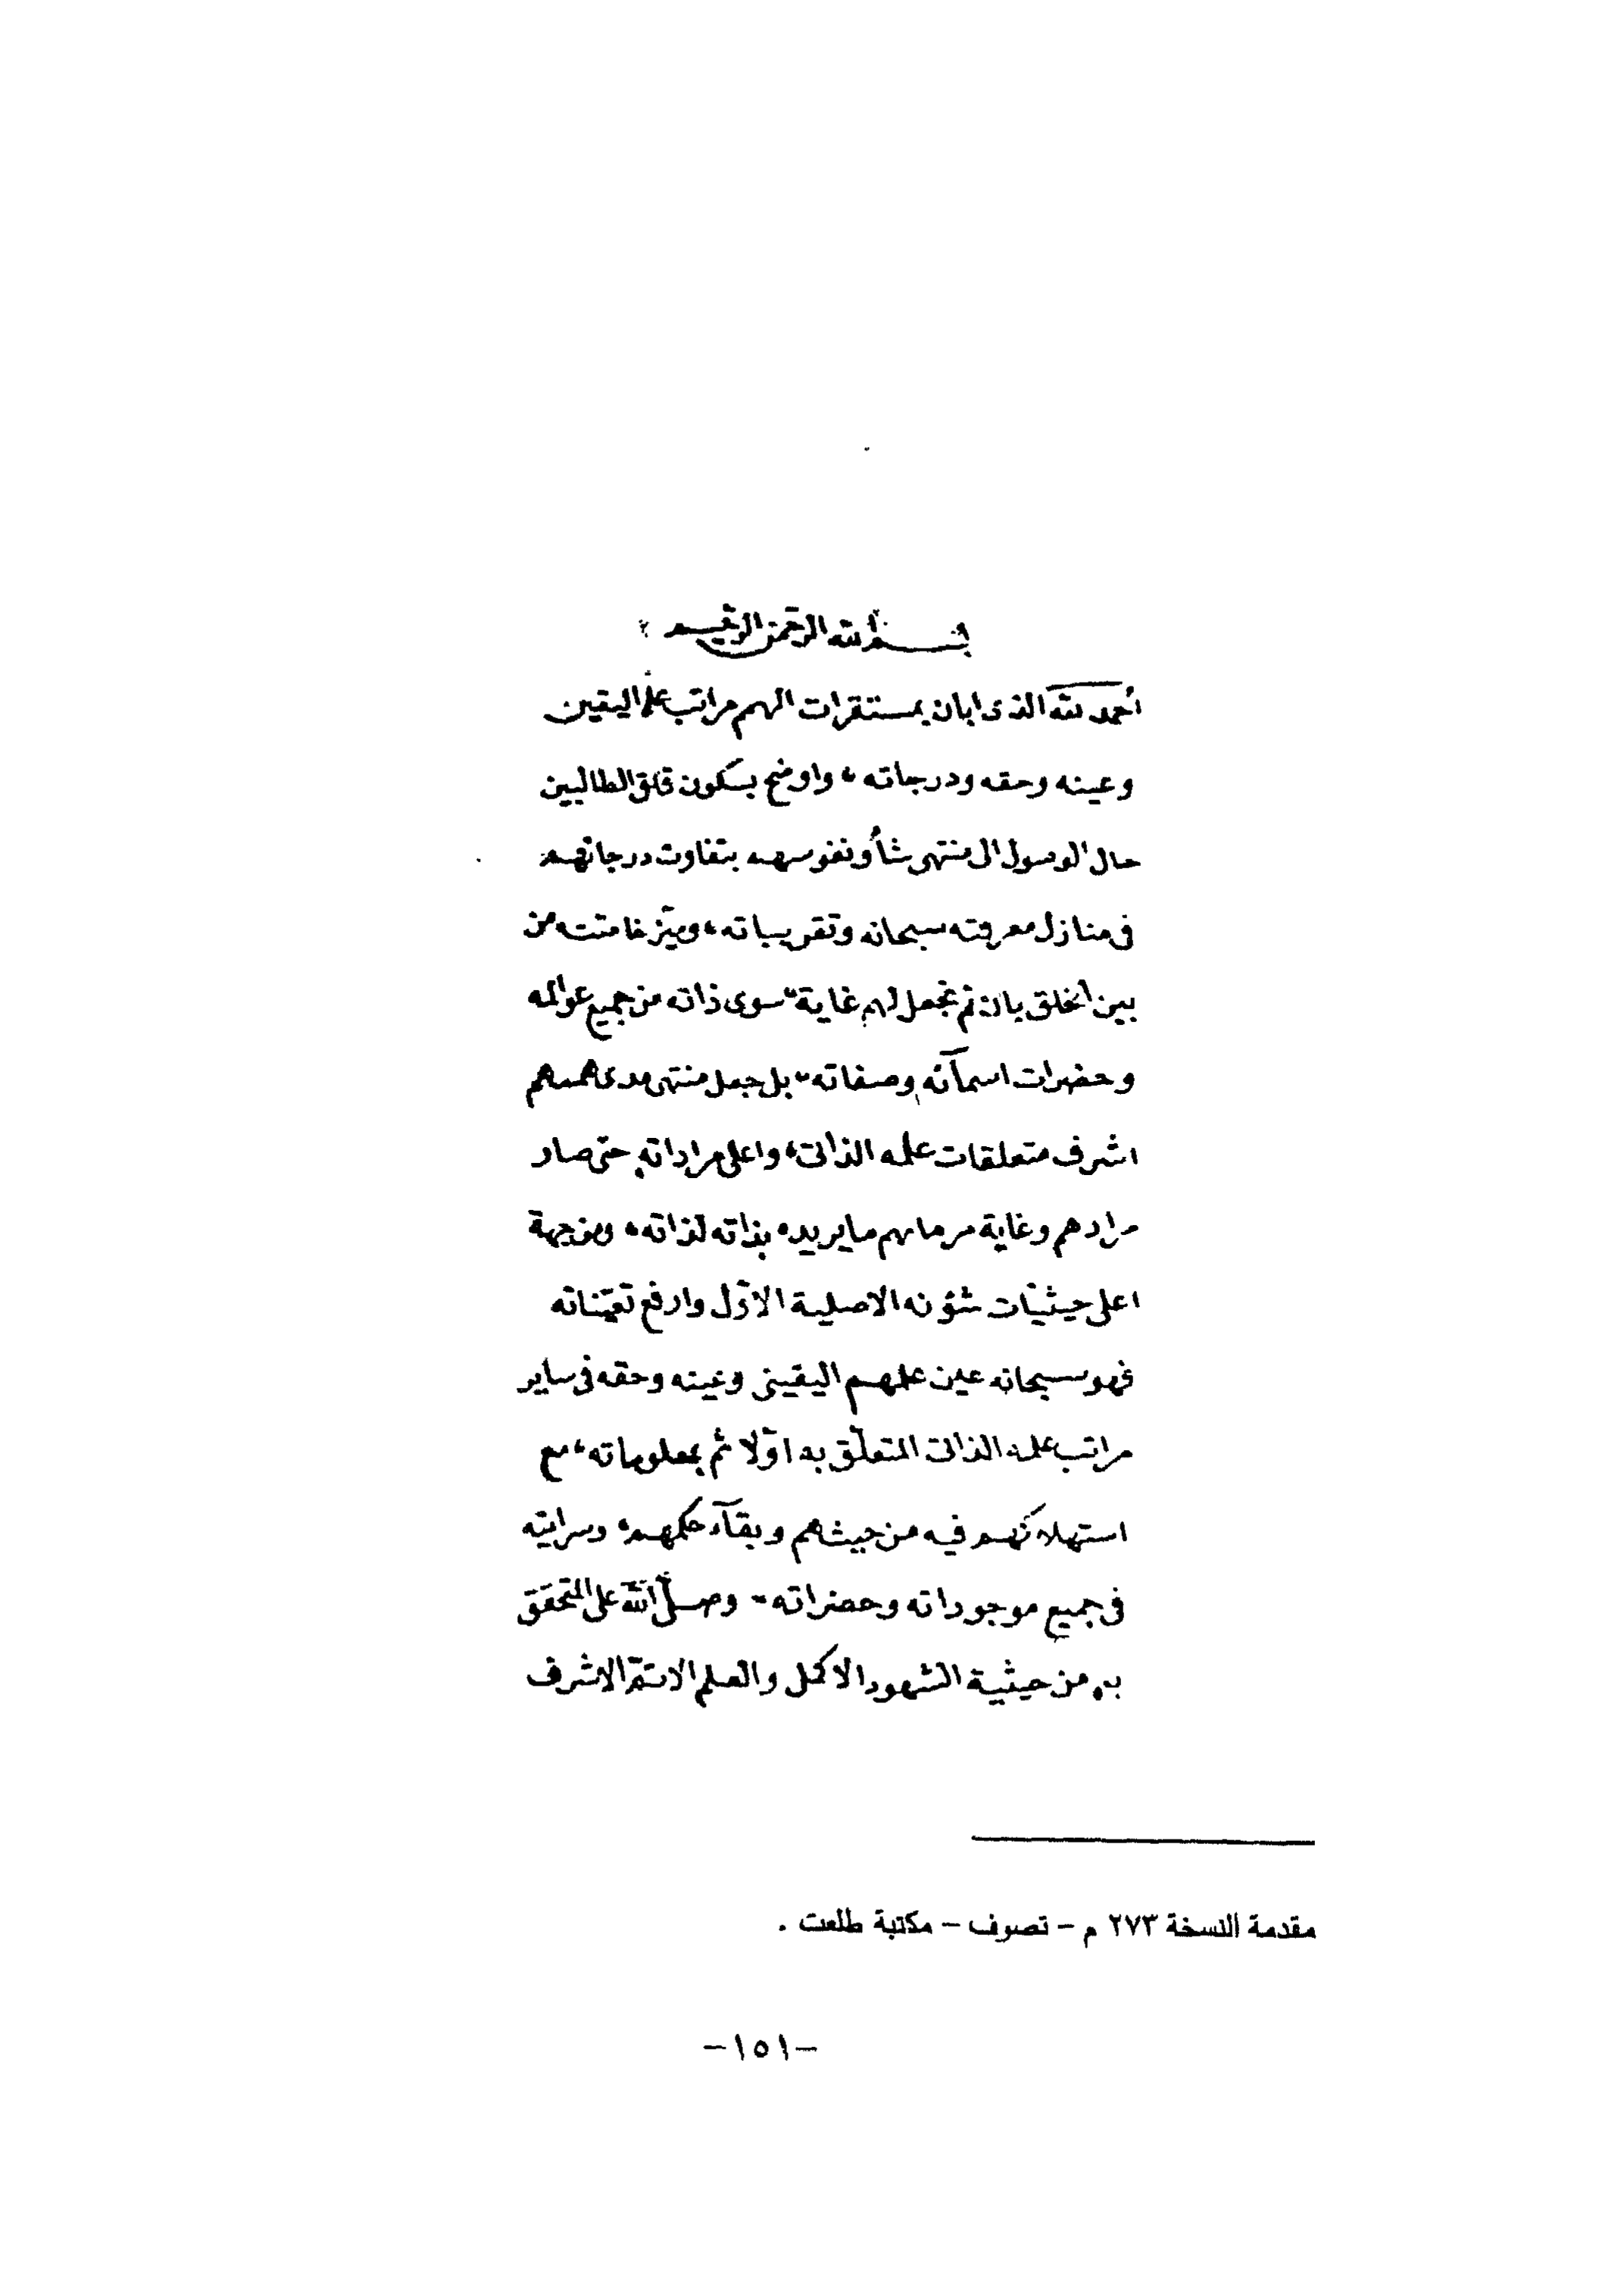 بسم الله الرحمن الرحيم
الحمد لله الذى ابان بمستقرات الهمم مراتب علم اليقين
وعينه وحقه ودرجاته، واوضح بسكون قلق الطالبين
حال الوصول الى منتهى شأو نفوسهم بتفاوت درجاتهم
فى منازل معرفته سبحانه وتقريباته، وميّز خاصته من
بين الخلق بان لم يجعل لهم غاية سوى ذاته من جميع عوالمه
وحضرات اسمآئه وصفاته، بل جعل منتهى مدى هممهم
اشرف متعلقات علمه الذاتى، واعلى مراداته حتى صار
مرادهم وغاية مرماهم ما يريده بذاته لذاته، ومن جهة
اعلى حيثيّات شؤنه الاصلية الاوّل وارفع تعيّناته
فهو سبحانه عين علمهم اليقينى وعينه وحقه فى ساير
مراتب علمه الذاتى المتعلّق به اوّلا ثم بمعلوماته، مع
استهلاكهم فيه من حيثهم وبقآء حكمهم، وسرايته
فى جميع موجوداته وحضراته، وصلّى الله على المتحقق
به من حيثية الشهود الاكمل والعلم الاتمّ الاشرف
مقدمة النسخة ٢٧٣ م - تصوف - مكتبة طلعت .
-١٥١-